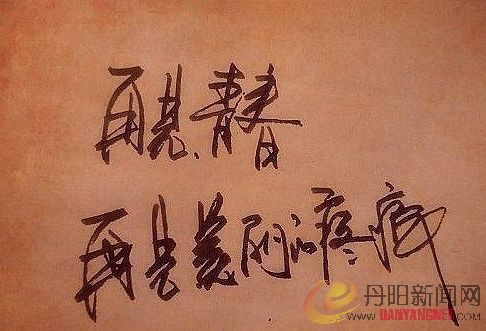 再见、青春
再见美丽的疼痛
丹阳新闻网